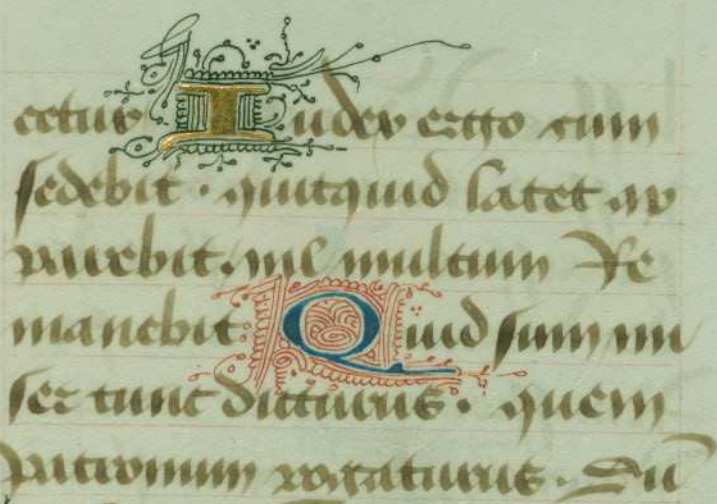 cetur Iudex ergo cum
sedebit · quitquid latet ap
parebit. nil multum Re
manebit Quid sum mi
ser tunc dicturus · quem
patronum rogaturus · Du